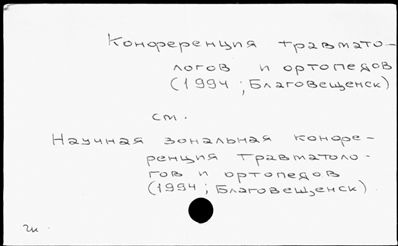 Конференция травмато-
логов и ортопедов
(1994 ; Благовещенск)
см.
Научная зональная конфе-
ренция травматоло-
гов и ортопедов
(1994 ; Благовещенск).